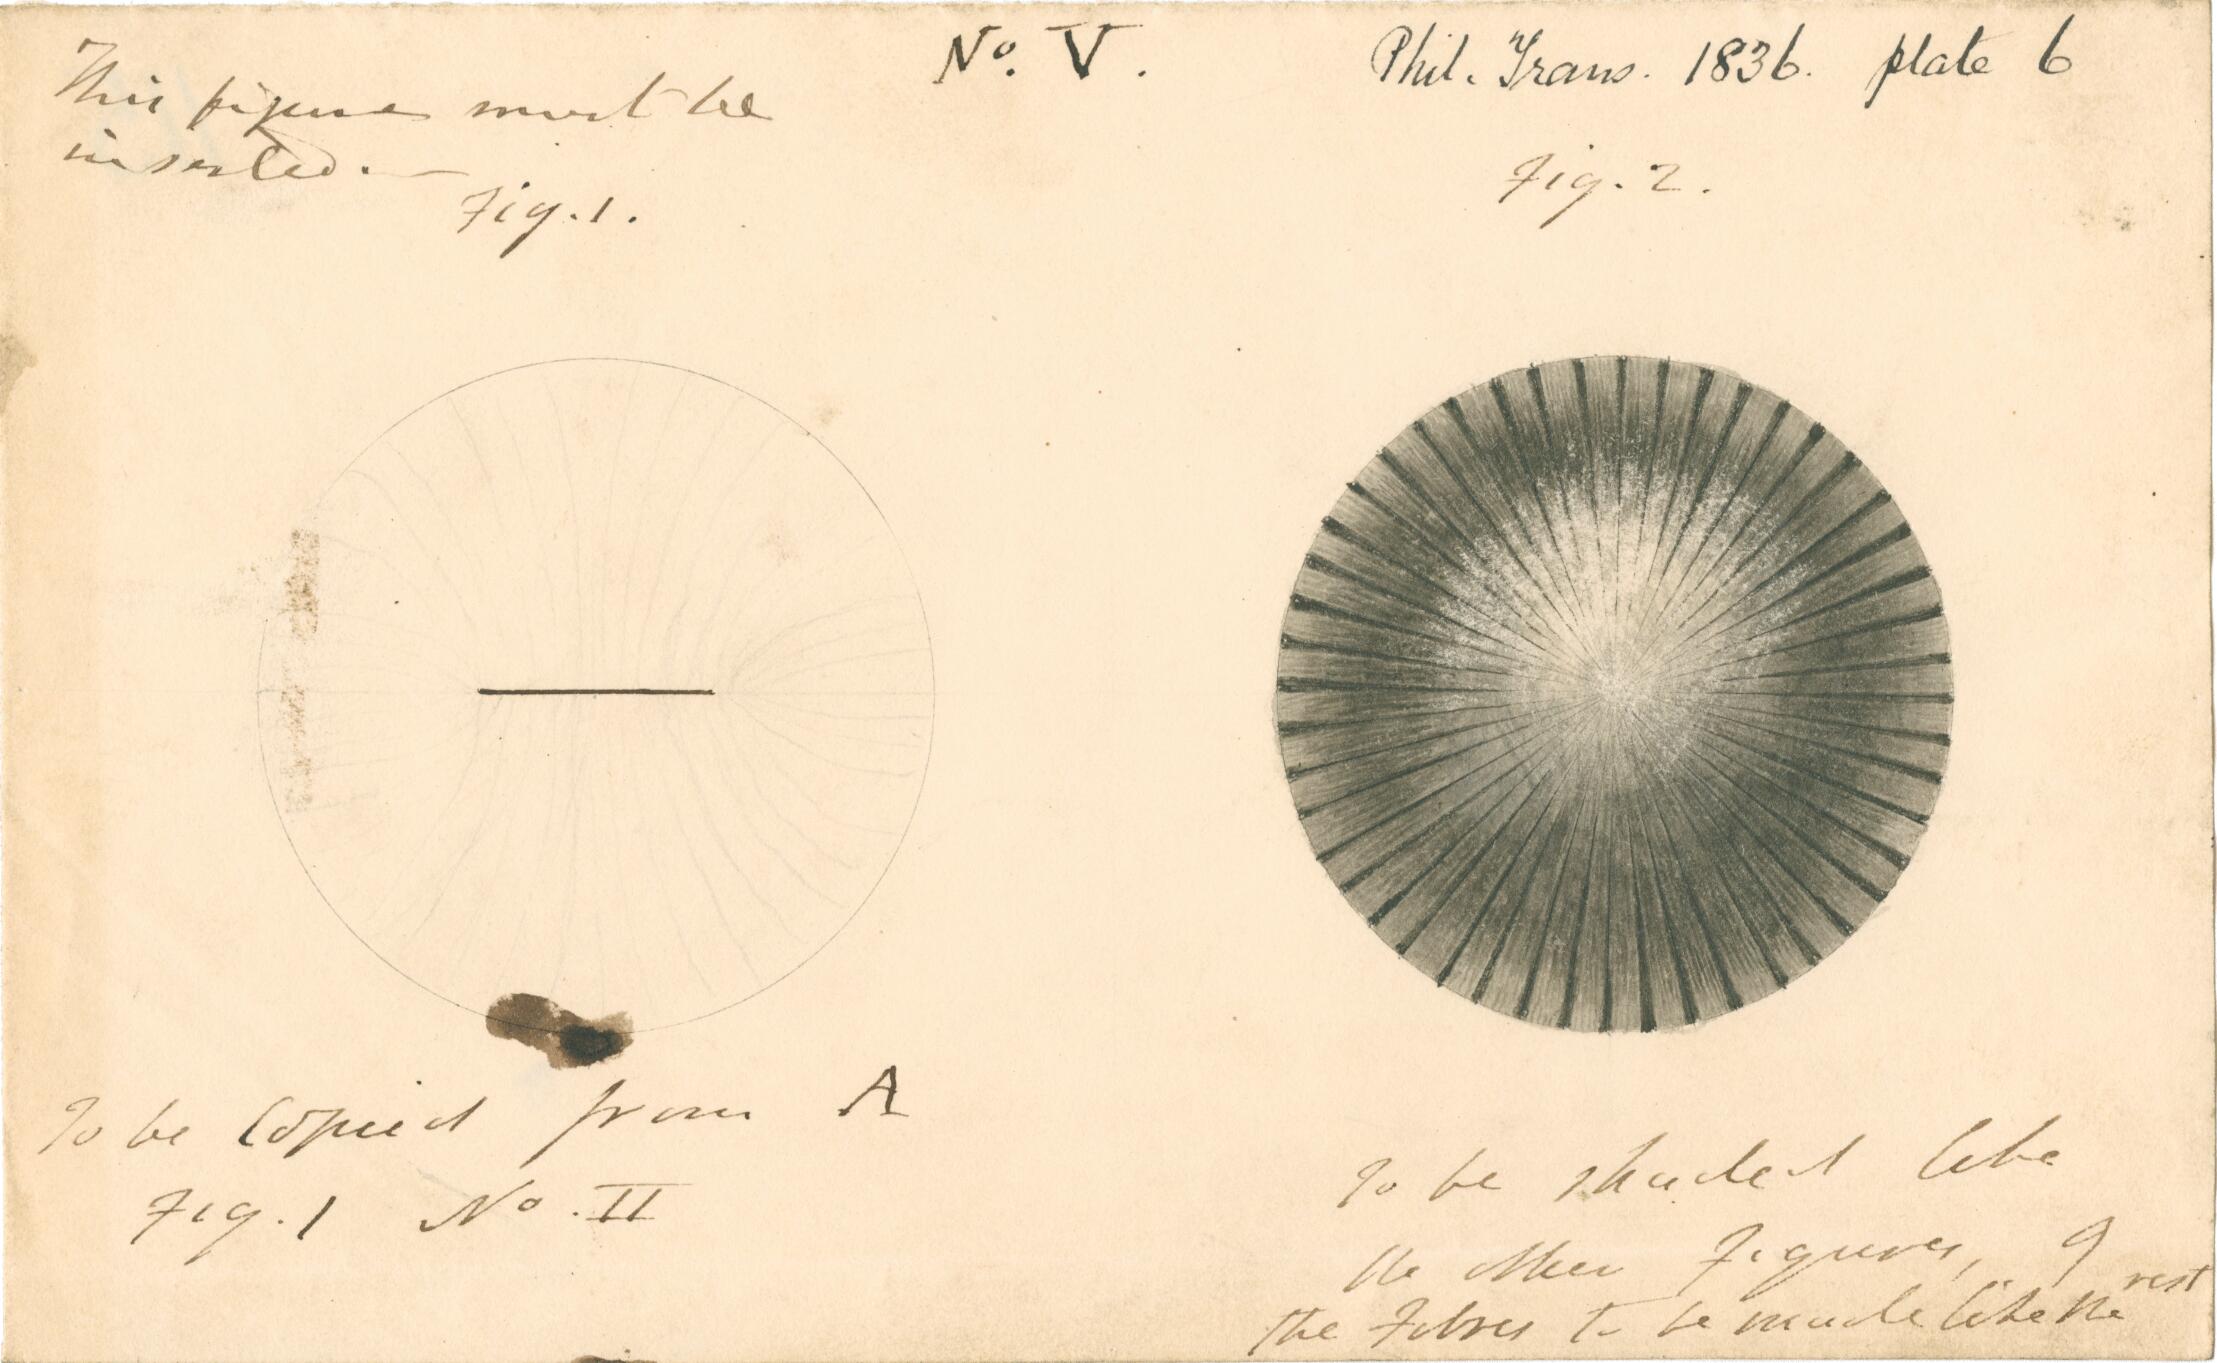 This figure must be
inserted.—
Fig. 1.
No. V.
Phil. Trans. 1836. plate 6
Fig. 2.
To be Copied from A
Fig. 1 No. II
To be shaded like
the other Figures, &
the Fibres to be made like the rest